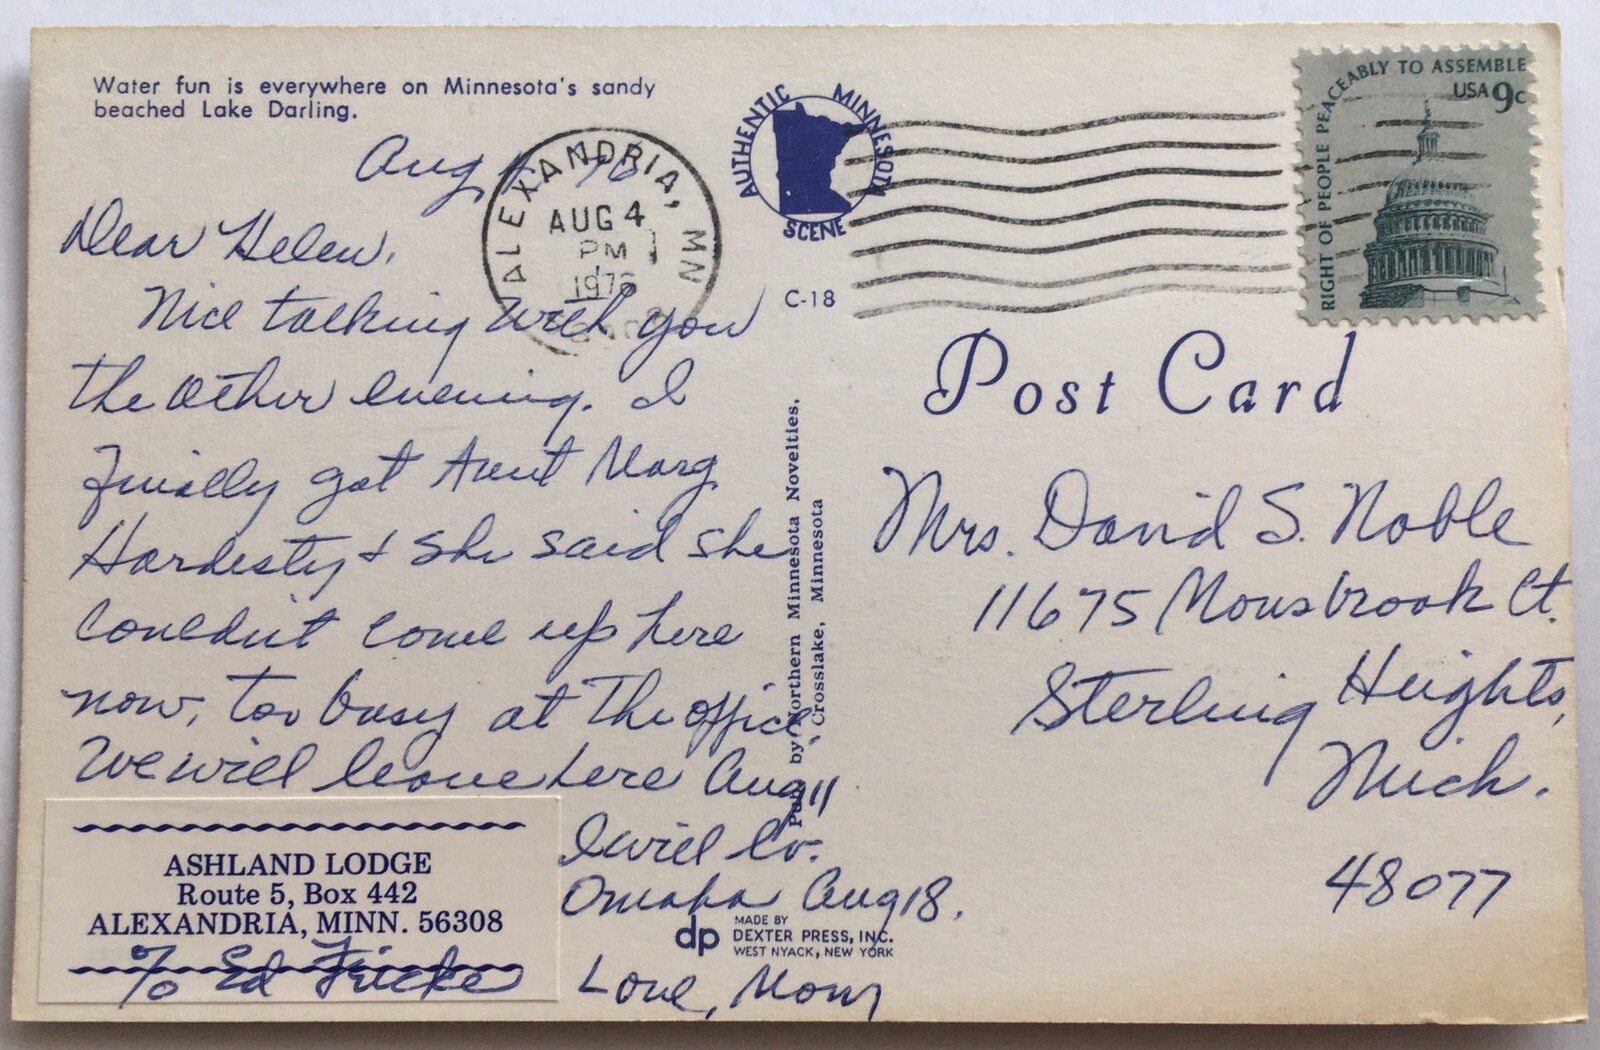 Water fun is everywhere on Minnesota's sandy
beached Lake Darling.
AUTHENTIC MINNESOTA
SCENE
C-18
ALEXANDRIA, MN
AUG 4
PM
RIGHT OF PEOPLE PEACEABLY TO ASSEMBLE
USA 9c
Aug
Dear Helen,
Nice talking with you
the other evening. I
finally got Aunt Marg
Hardesty & she said she
couldn't come up here
now, too busy at the office.
We will leave here Aug 11
I will lv.
Omaha Aug 18.
Love, Mom
ASHLAND LODGE
Route 5, Box 442
ALEXANDRIA, MINN. 56308
% Ed Fricke
Pub. by Northern Minnesota Novelties.
Crosslake, Minnesota
dp
MADE BY
DEXTER PRESS, INC.
WEST NYACK, NEW YORK
Post Card
Mrs. David S. Noble
11675 Monsbrook Ct.
Sterling Heights,
Mich.
48077